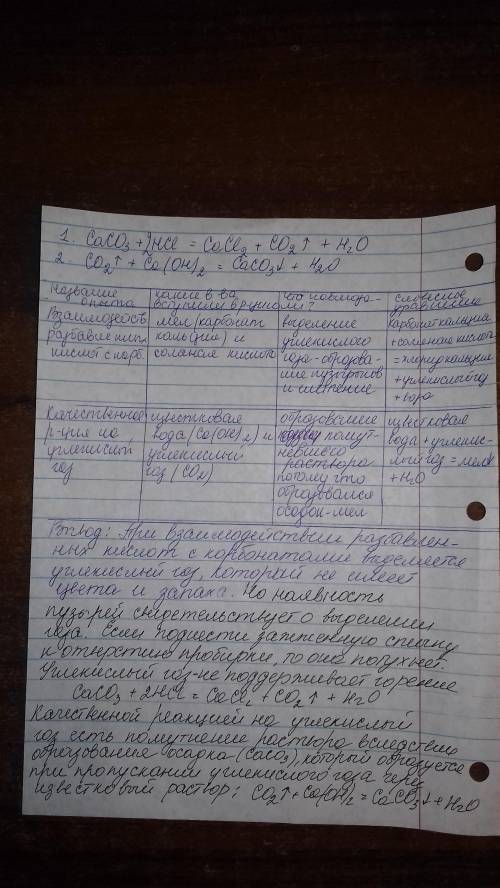 1. CaCO3 + 2HCl = CaCl2 + CO2↑ + H2O
2. CO2↑ + Ca(OH)2 = CaCO3↓ + H2O
Название опыта
какие в-ва вступили в р-цию
что наблюдали?
словесное уравнение
Взаимодейств. разбавленных кислот с карб.
мел (карбонат кальция) и соляная кислота
выделение углекислого газа - образование пузырьков и шипение
карбонат кальция + соляная кислота = хлорид кальция + углекислый газ + вода
Качественная р-ция на углекислый газ
известковая вода (Ca(OH)2) и углекислый газ (CO2)
образование помутневшего раствора потому что образовался осадок - мел
известковая вода + углекислый газ = мел↓ + H2O
Вывод: При взаимодействии разбавлен-
ных кислот с карбонатами выделяется
углекислый газ, который не имеет
цвета и запаха. Но наявность
пузырей свидетельствует о выделении
газа. Если поднести зажженную спичку
к отверстию пробирки, то она потухнет.
Углекислый газ - не поддерживает горение
CaCO3 + 2HCl = CaCl2 + CO2↑ + H2O
Качественной реакцией на углекислый
газ есть помутнение раствора вследствие
образования осадка (CaCO3), который образуется
при пропускании углекислого газа через
известковый раствор: CO2↑ + Ca(OH)2 = CaCO3↓ + H2O